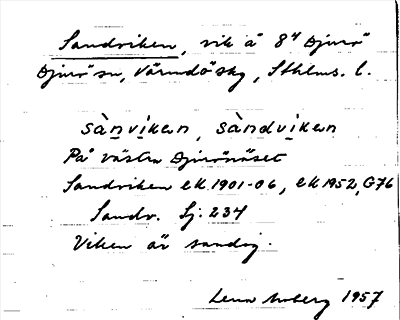 Sandviken, vik å 8⁴ Djurö
Djurö sn, Värmdö skg, Sthlms. l.
sànviken, sàndviken
På västra Djurönäset
Sandviken ek. 1901-06, ek 1952, G76
Sandv. Sj: 234
Viken är sandig.
Lena Moberg 1957